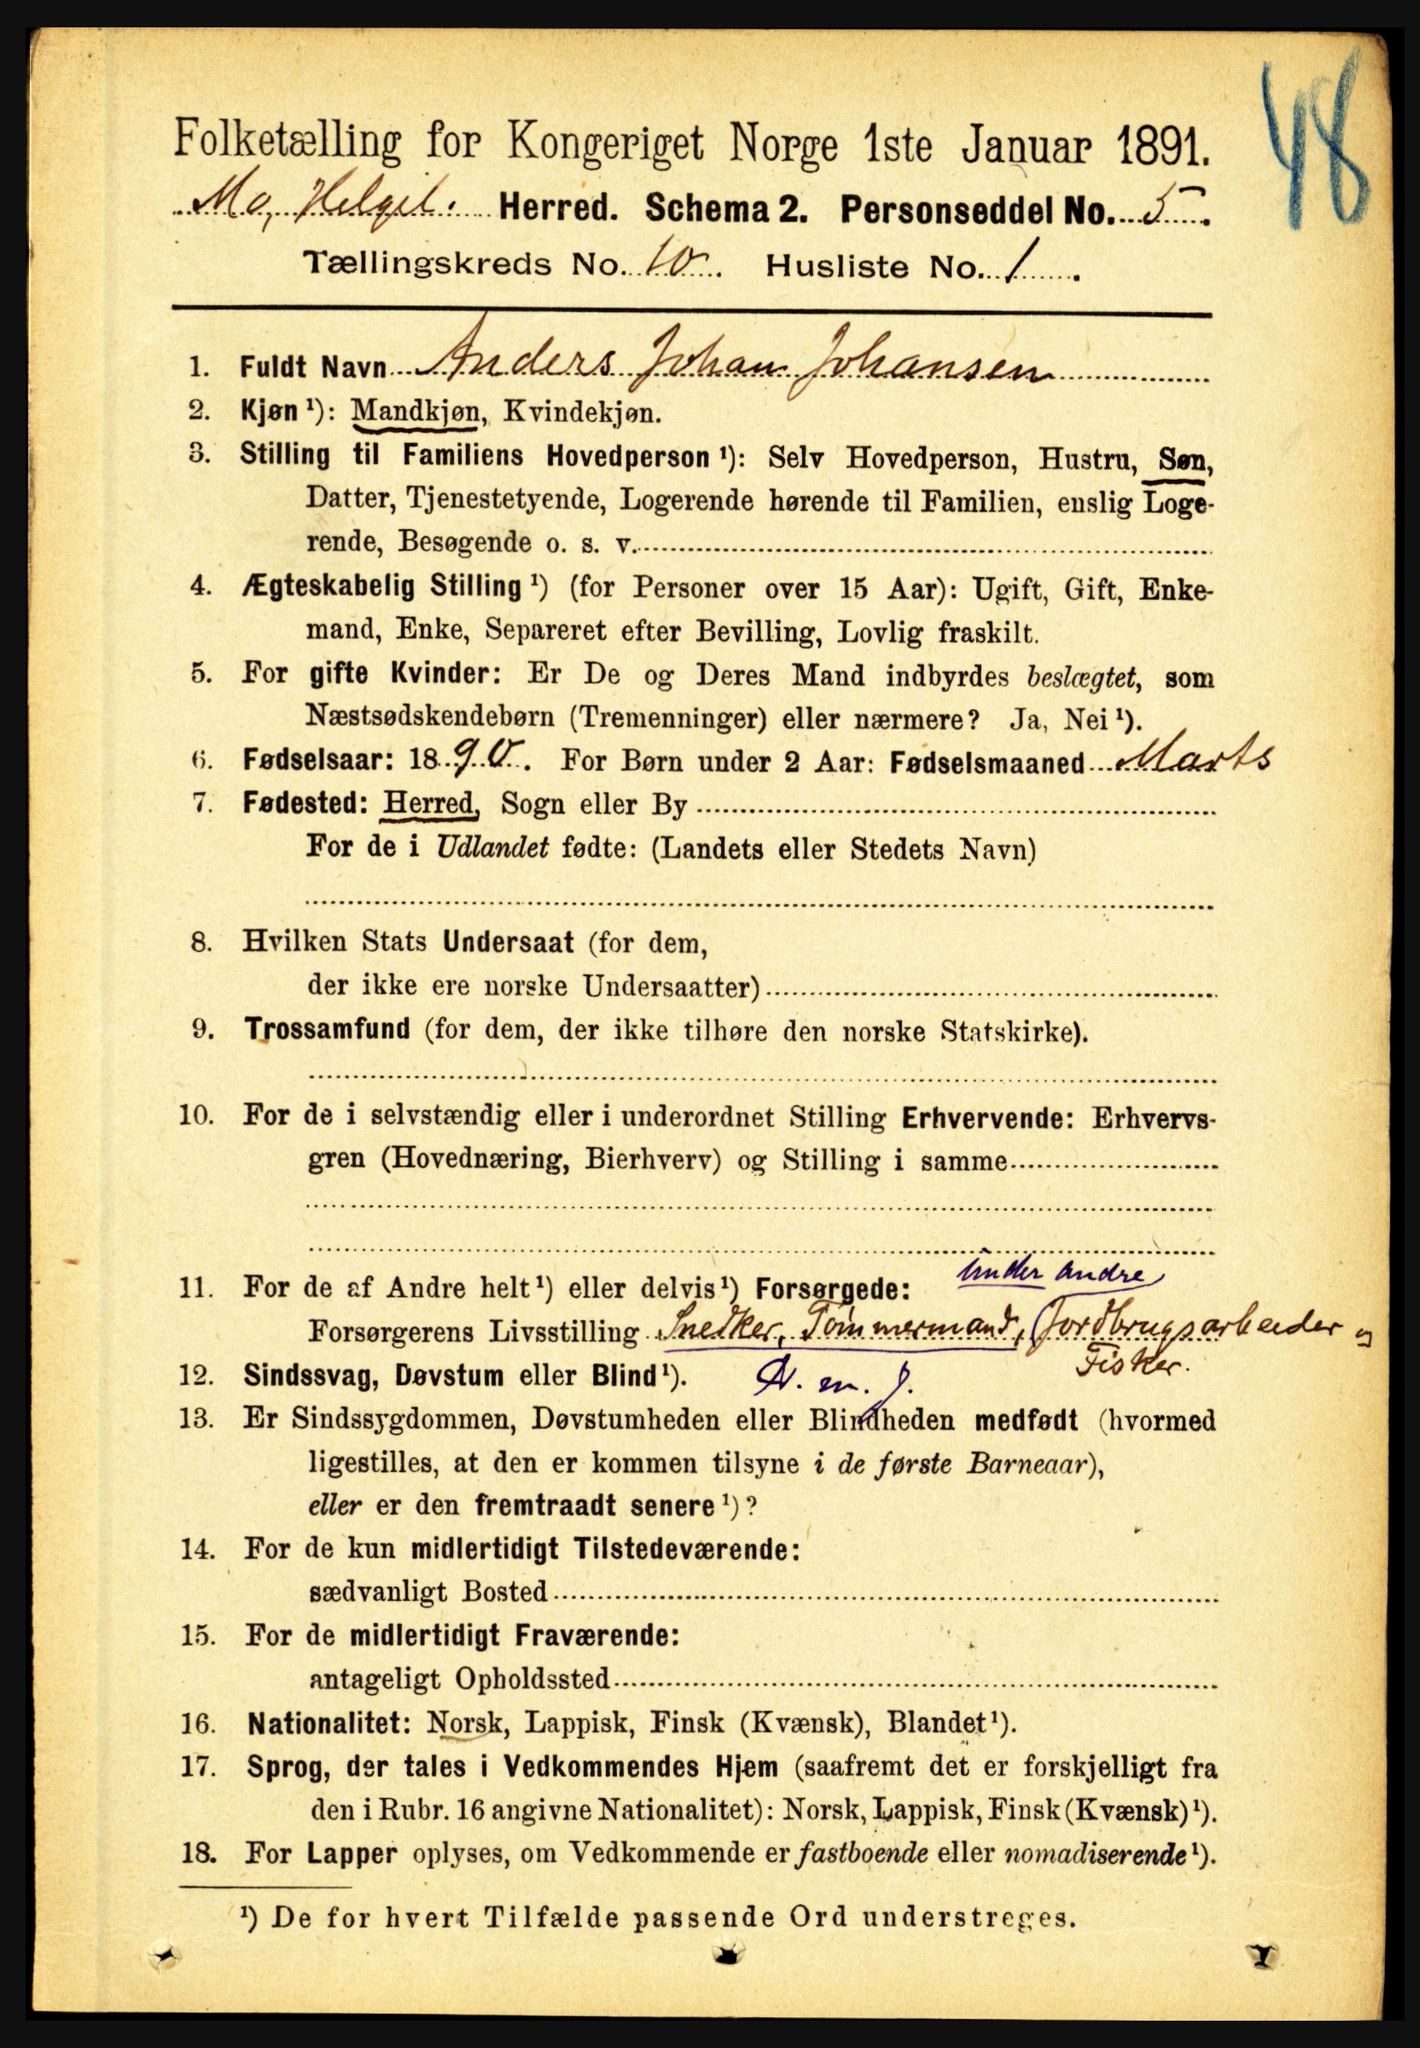 48
Folketælling for Kongeriget Norge 1ste Januar 1891.
Mo, Helgel. Herred. Schema 2. Personseddel No. 5.
Tællingskreds No. 10. Husliste No. 1.
1. Fuldt Navn Anders Johan Johansen
2. Kjøn ¹): Mandkjøn, Kvindekjøn.
3. Stilling til Familiens Hovedperson ¹): Selv Hovedperson, Hustru, Søn,
Datter, Tjenestetyende, Logerende hørende til Familien, enslig Loge-
rende, Besøgende o. s. v.
4. Ægteskabelig Stilling ¹) (for Personer over 15 Aar): Ugift, Gift, Enke-
mand, Enke, Separeret efter Bevilling, Lovlig fraskilt.
5. For gifte Kvinder: Er De og Deres Mand indbyrdes beslægtet, som
Næstsødskendebørn (Tremenninger) eller nærmere? Ja, Nei ¹).
6. Fødselsaar: 1890. For Børn under 2 Aar: Fødselsmaaned Marts
7. Fødested: Herred, Sogn eller By
For de i Udlandet fødte: (Landets eller Stedets Navn)
8. Hvilken Stats Undersaat (for dem,
der ikke ere norske Undersaatter)
9. Trossamfund (for dem, der ikke tilhøre den norske Statskirke).
10. For de i selvstændig eller i underordnet Stilling Erhvervende: Erhvervs-
gren (Hovednæring, Bierhverv) og Stilling i samme
11. For de af Andre helt ¹) eller delvis ¹) Forsørgede: under andre
Forsørgerens Livsstilling Snedker, Tømmermand, Jordbrugsarbeider og
Fisker.
12. Sindssvag, Døvstum eller Blind ¹). N. m. J.
13. Er Sindssygdommen, Døvstumheden eller Blindheden medfødt (hvormed
ligestilles, at den er kommen tilsyne i de første Barneaar),
eller er den fremtraadt senere ¹)?
14. For de kun midlertidigt Tilstedeværende:
sædvanligt Bosted
15. For de midlertidigt Fraværende:
antageligt Opholdssted
16. Nationalitet: Norsk, Lappisk, Finsk (Kvænsk), Blandet ¹).
17. Sprog, der tales i Vedkommendes Hjem (saafremt det er forskjelligt fra
den i Rubr. 16 angivne Nationalitet): Norsk, Lappisk, Finsk (Kvænsk) ¹).
18. For Lapper oplyses, om Vedkommende er fastboende eller nomadiserende ¹).
¹) De for hvert Tilfælde passende Ord understreges.